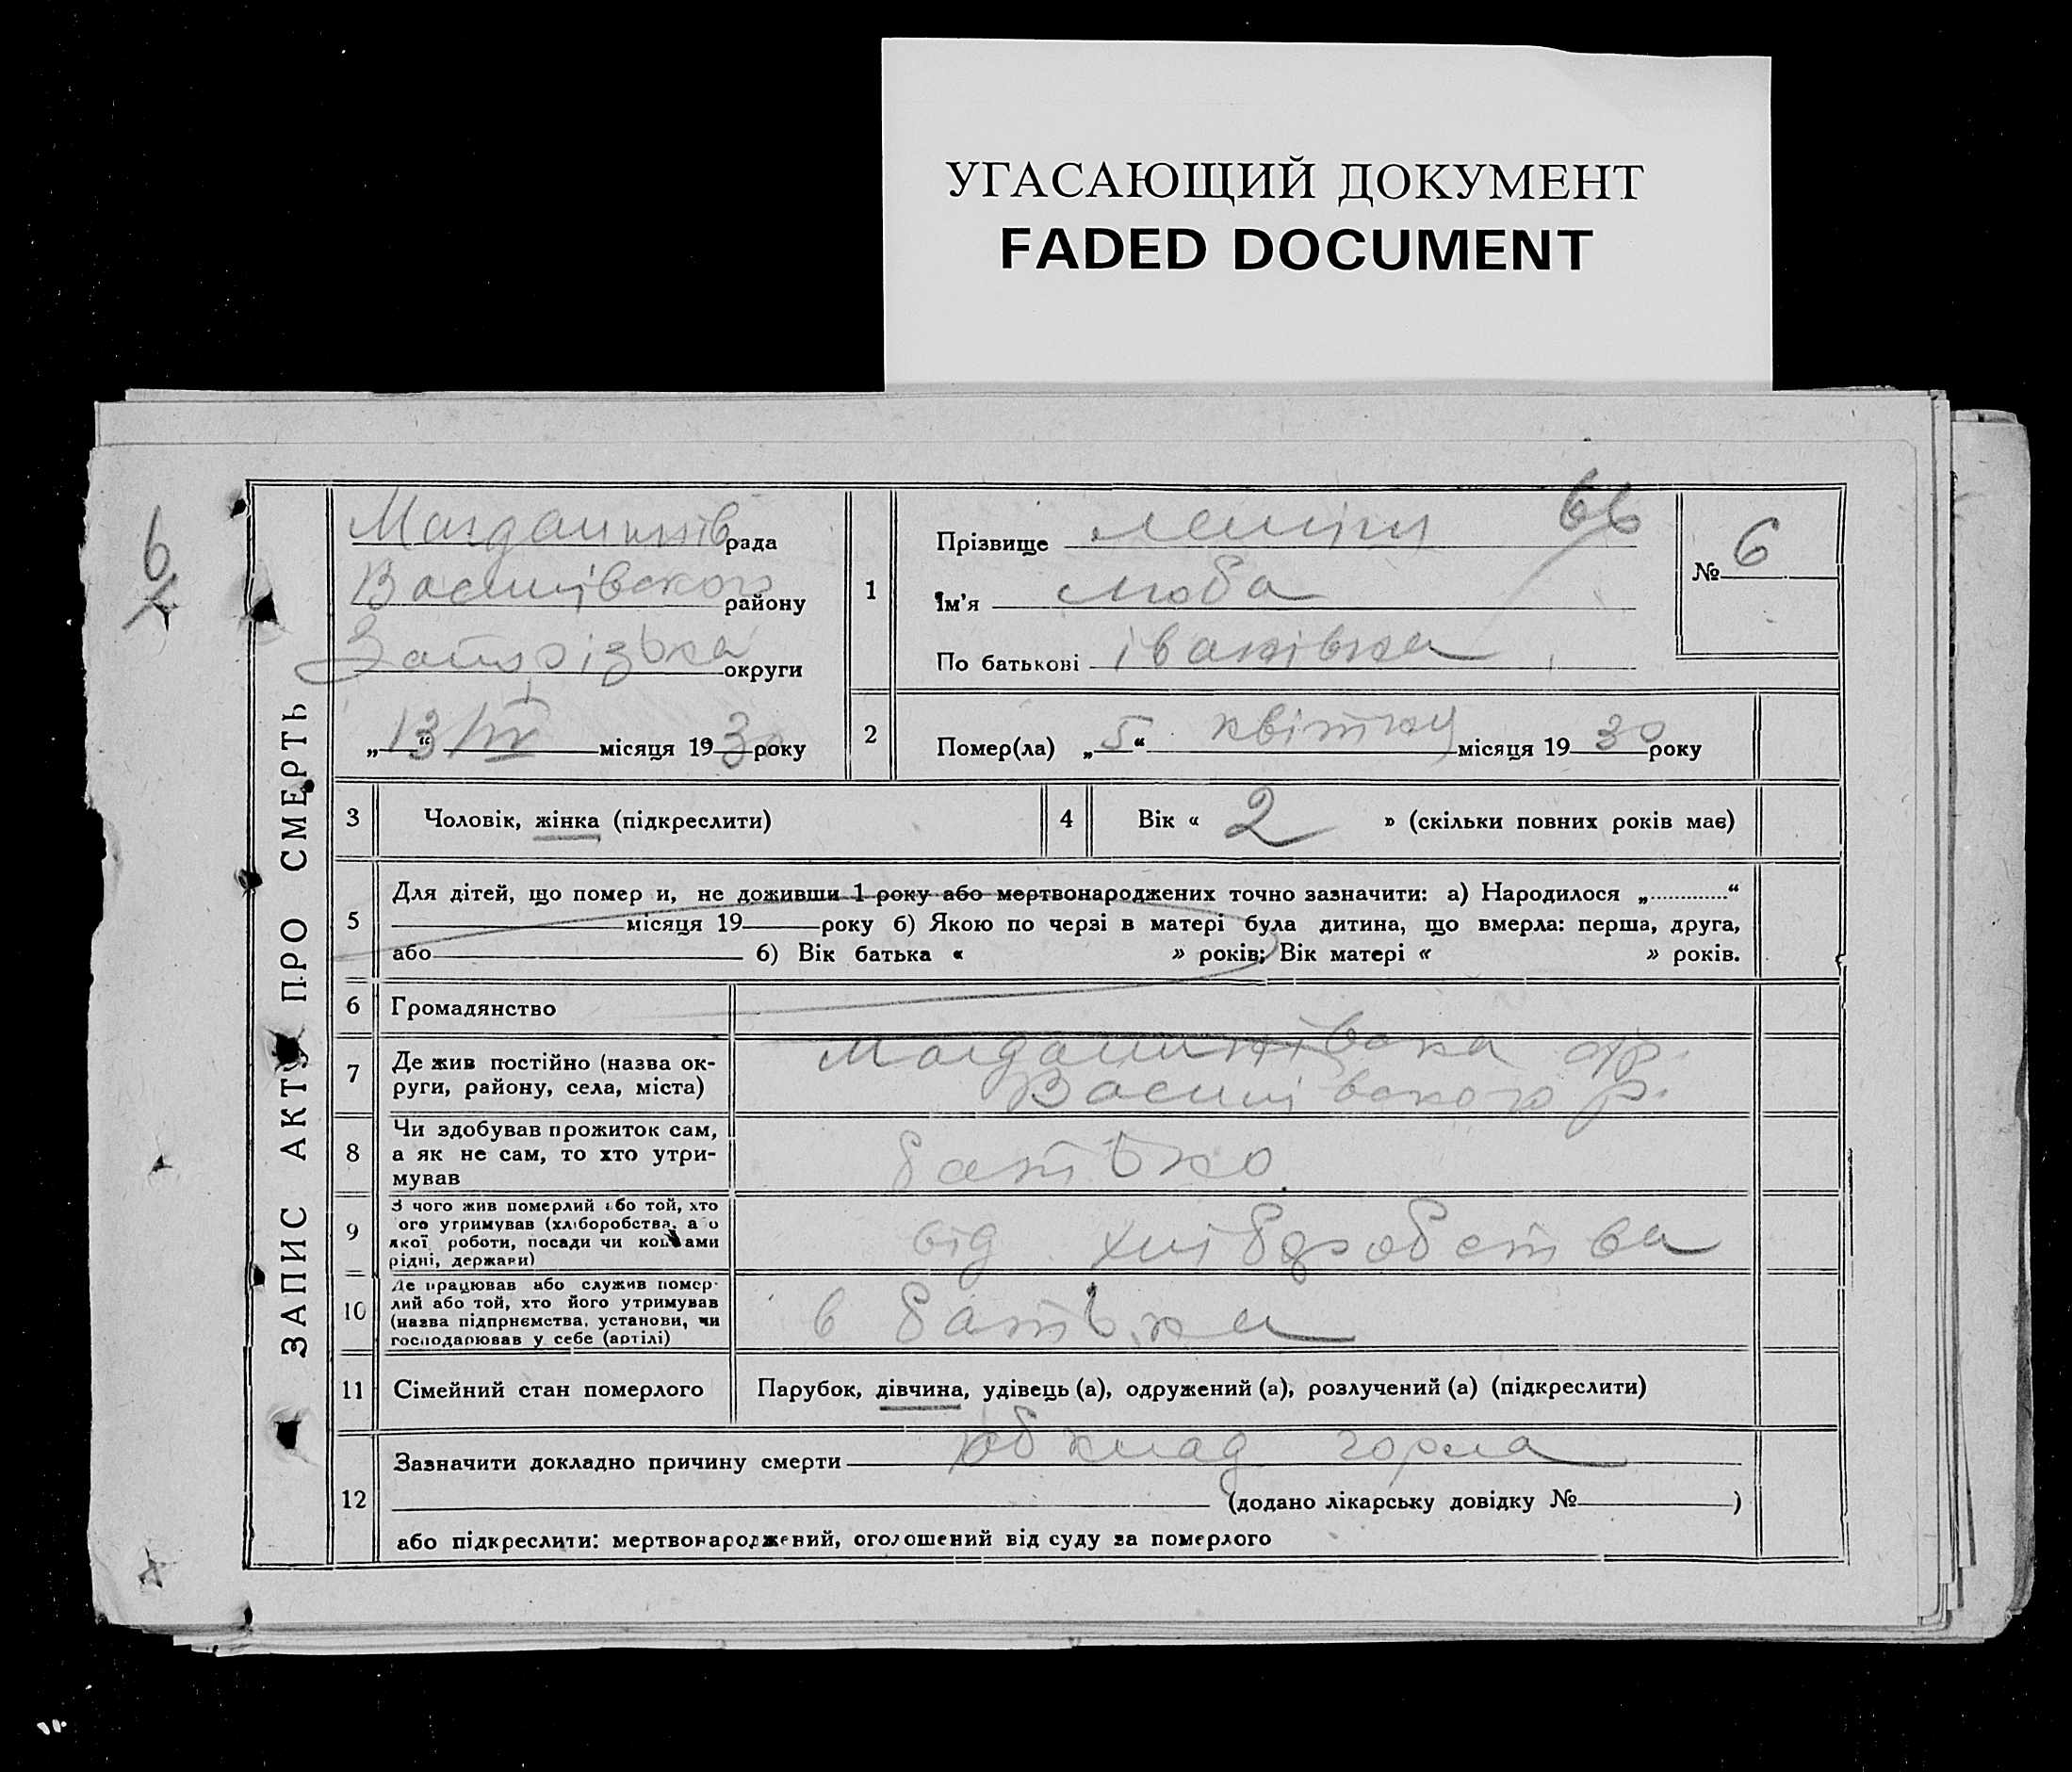 УГАСАЮЩИЙ ДОКУМЕНТ
FADED DOCUMENT
6
ЗАПИС АКТУ ПРО СМЕРТЬ
рада
Василівского району
Запорізька округи
„13“ IV місяця 1930 року
1
Прізвище
66
Ім'я Люба
По батькові Іванівна
№ 6
2
Помер(ла) „5“ квітня місяця 1930 року
3
Чоловік, жінка (підкреслити)
4
Вік « 2 » (скільки повних років має)
5
Для дітей, що помер и, не доживши 1 року або мертвонароджених точно зазначити: а) Народилося „............“
місяця 19 року б) Якою по черзі в матері була дитина, що вмерла: перша, друга,
або б) Вік батька « » років; Вік матері « » років.
6
Громадянство
7
Де жив постійно (назва ок-
руги, району, села, міста)
Василівского р.
8
Чи здобував прожиток сам,
а як не сам, то хто утри-
мував
батько
9
З чого жив померлий або той, хто
ого утримував (хліборобства, або
якої роботи, посади чи коштами
рідні, держави)
від хліборобства
10
Де працював або служив помер-
лий або той, хто його утримував
(назва підприємства, установи, чи
господарював у себе (артілі)
в батька
11
Сімейний стан померлого
Парубок, дівчина, удівець (а), одружений (а), розлучений (а) (підкреслити)
12
Зазначити докладно причину смерти обклад горла
(додано лікарську довідку № )
або підкреслити: мертвонароджений, оголошений від суду за померлого